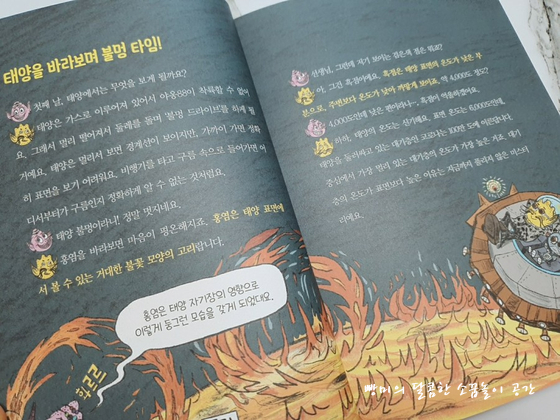 태양을 바라보며 불멍 타임!
첫째 날, 태양에서는 무엇을 보게 될까요?
태양은 가스로 이루어져 있어서 야옹88이 착륙할 수 없어
요. 그래서 멀리 떨어져서 둘레를 돌며 '불멍 드라이브'를 하게 될
거예요. 태양은 멀리서 보면 경계선이 보이지만, 가까이 가면 정확
히 표면을 보기 어려워요. 비행기를 타고 구름 속으로 들어가면 어
디서부터가 구름인지 정확하게 알 수 없는 것처럼요.
태양 불멍이라니! 정말 멋지네요.
홍염을 바라보면 마음이 평온해지죠. 홍염은 태양 표면에
서 볼 수 있는 거대한 불꽃 모양의 고리랍니다.
홍염은 태양 자기장의 영향으로
이렇게 둥그런 모습을 갖게 되었대요.
화르르
선생님, 그런데 저기 보이는 검은색 점은 뭐죠?
아, 그건 흑점이에요. 흑점은 태양 표면의 온도가 낮은 부
분으로, 주변보다 온도가 낮아 까맣게 보이죠. 약 4,000도 정도?
4,000도인데 낮은 편이라니…. 흑점이 억울하겠어요.
하하. 태양의 온도는 신기해요. 표면 온도는 6,000도인데,
태양을 둘러싸고 있는 대기층인 코로나는 100만 도에 이른답니다.
중심에서 가장 멀리 있는 대기층의 온도가 가장 높은 거죠. 대기
층의 온도가 표면보다 높은 이유는 지금까지 풀리지 않은 미스터
리예요.
빵미의 달콤한 소꿉놀이 공간